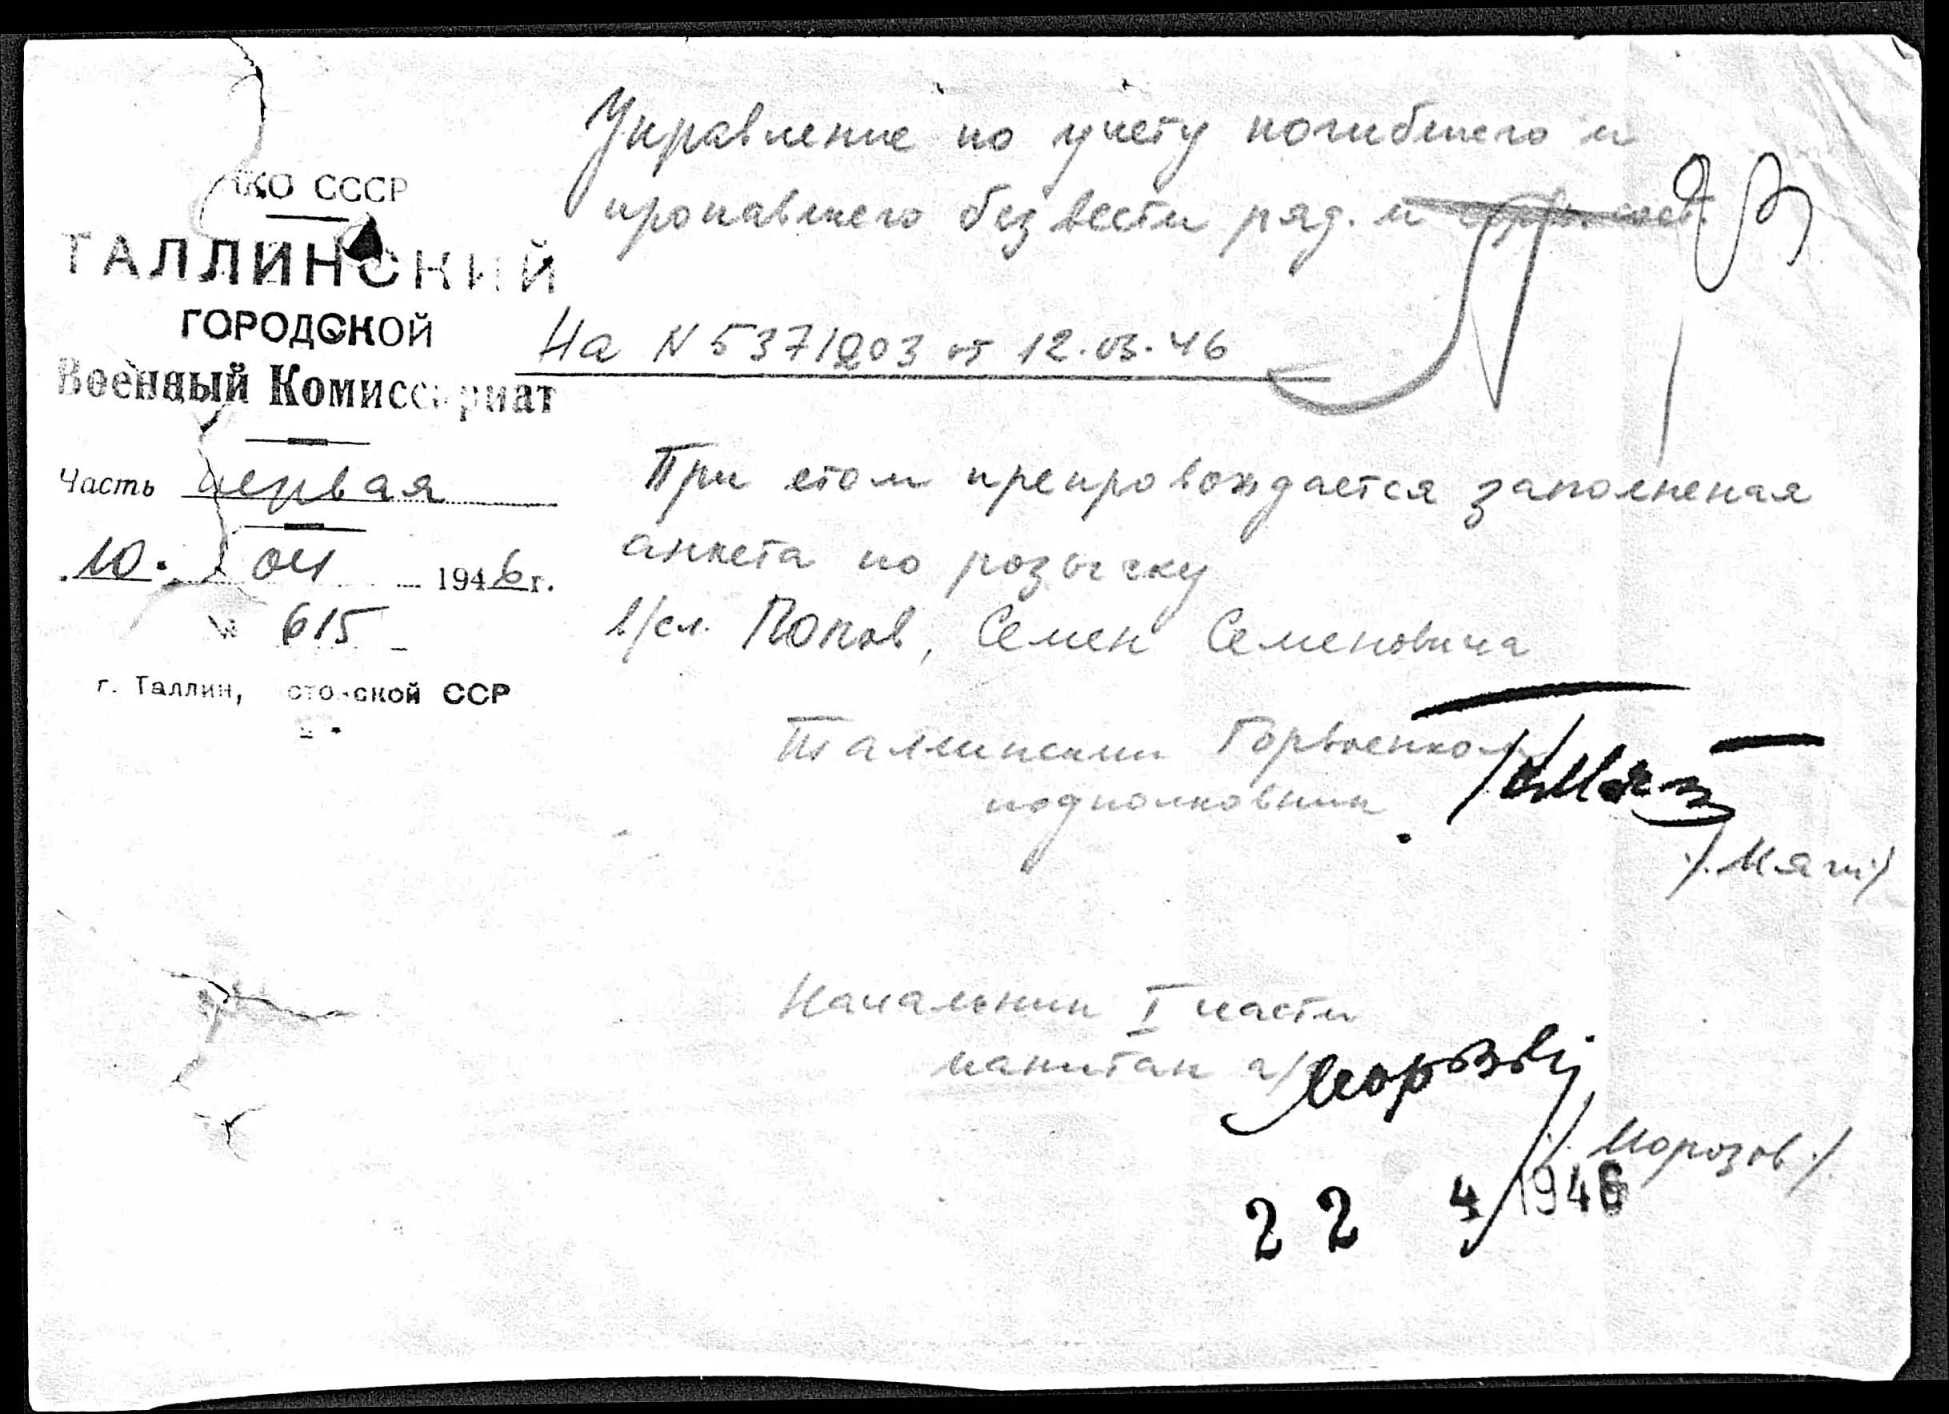 НКО СССР
ТАЛЛИНСКИЙ
ГОРОДСКОЙ
Военный Комиссариат
Часть первая
10. 04 1946 г.
№ 615
г. Таллин, Эстонской ССР
Управление по учету погибшего и
пропавшего без вести ряд. и серж. сост.
На N 537/203 от 12.03.46
При етом препровождается заполненая
анкета по розыску
в/сл. Попов, Семен Семеновича
Таллинский Горвоенком
подполковник
Начальник I части
капитан а/с
/. Морозов ./
22 4 1946